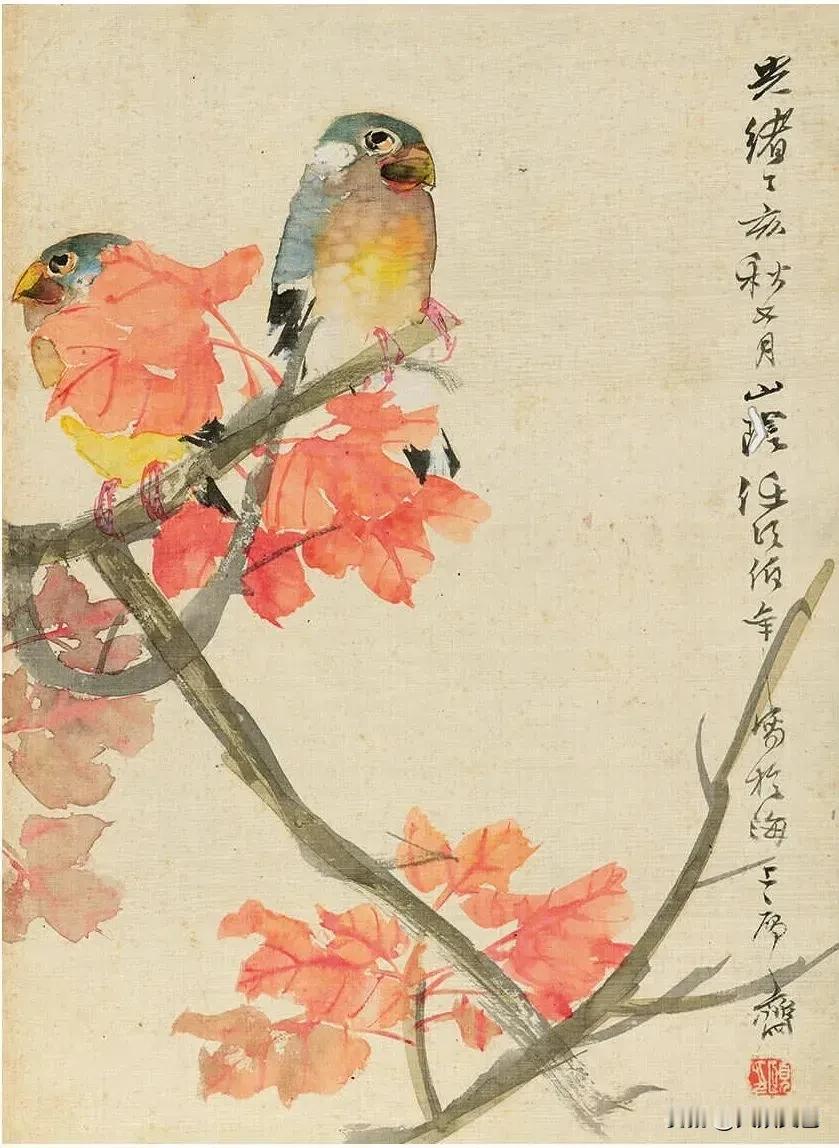 光緒丁亥秋月山陰任頤伯年寫於海上寓齋
頤印